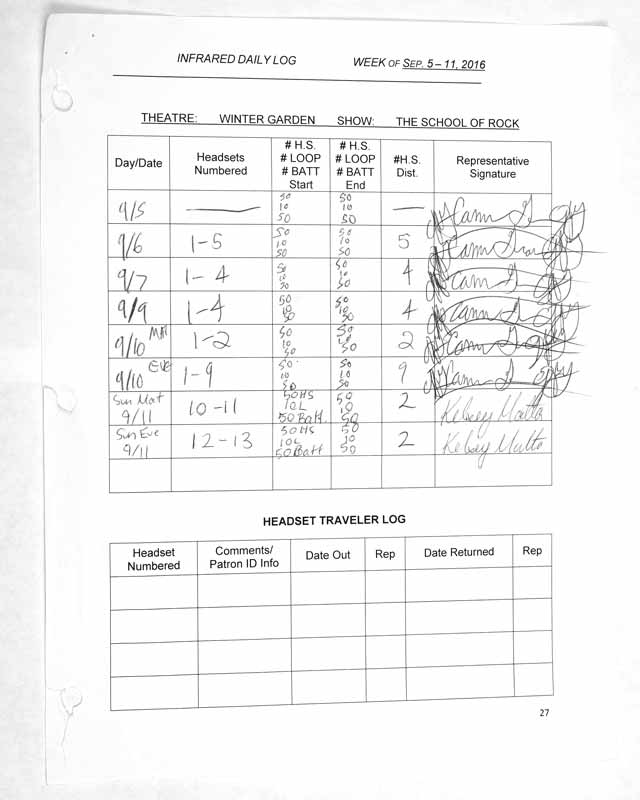 INFRARED DAILY LOG WEEK OF SEP. 5 – 11, 2016
THEATRE: WINTER GARDEN SHOW: THE SCHOOL OF ROCK
Day/Date Headsets Numbered # H.S. # LOOP # BATT Start # H.S. # LOOP # BATT End #H.S. Dist. Representative Signature
9/5 — 50 10 50 50 10 50 —
9/6 1-5 50 10 50 50 10 50 5
9/7 1-4 50 10 50 50 10 50 4
9/9 1-4 50 10 50 50 10 50 4
9/10 MAT 1-2 50 10 50 50 10 50 2
9/10 EVE 1-9 50 10 50 50 10 50 9
Sun Mat 9/11 10-11 50HS 10L 50 Batt. 50 10 50 2 Kelsey
Sun Eve 9/11 12-13 50HS 10L 50 Batt 50 10 50 2 Kelsey
HEADSET TRAVELER LOG
Headset Numbered Comments/ Patron ID Info Date Out Rep Date Returned Rep
27